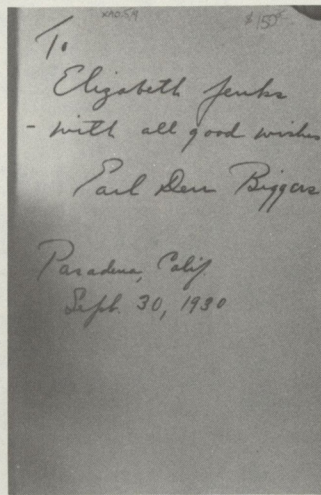 XAD.59 $150
To
Elizabeth Jenks
- with all good wishes
Earl Derr Biggers
Pasadena, Calif
Sept. 30, 1930